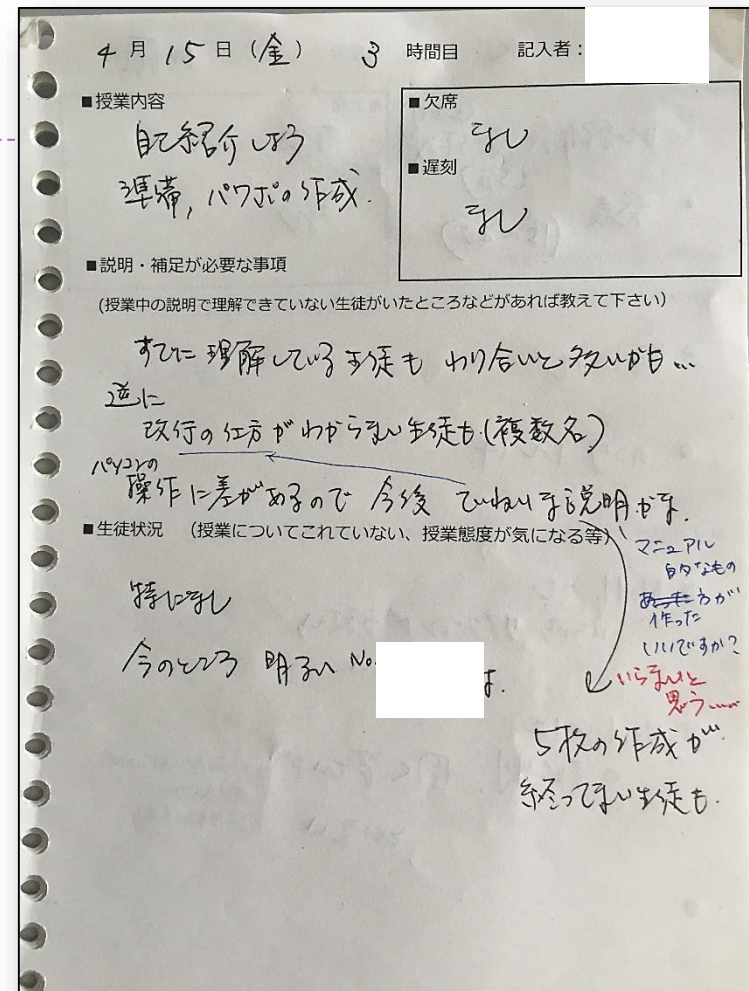 4月15日(金) 3 時間目 記入者:
■授業内容
自己紹介しよう
準備, パワポの作成.
■欠席
なし
■遅刻
なし
■説明・補足が必要な事項
(授業中の説明で理解できていない生徒がいたところなどがあれば教えて下さい)
すでに理解している生徒も わり合いと多いかも…
逆に
改行の仕方がわからない生徒も(複数名)
パソコンの
操作に差があるので 今後 ていねいな説明がま.
■生徒状況 (授業についてこれていない、授業態度が気になる等)
マニュアル
的なもの
あった方が
作った
いいですか?
いらないと
思う……
特になし
今のところ 明るい No.
す.
5枚の作成が
終ってない生徒も.